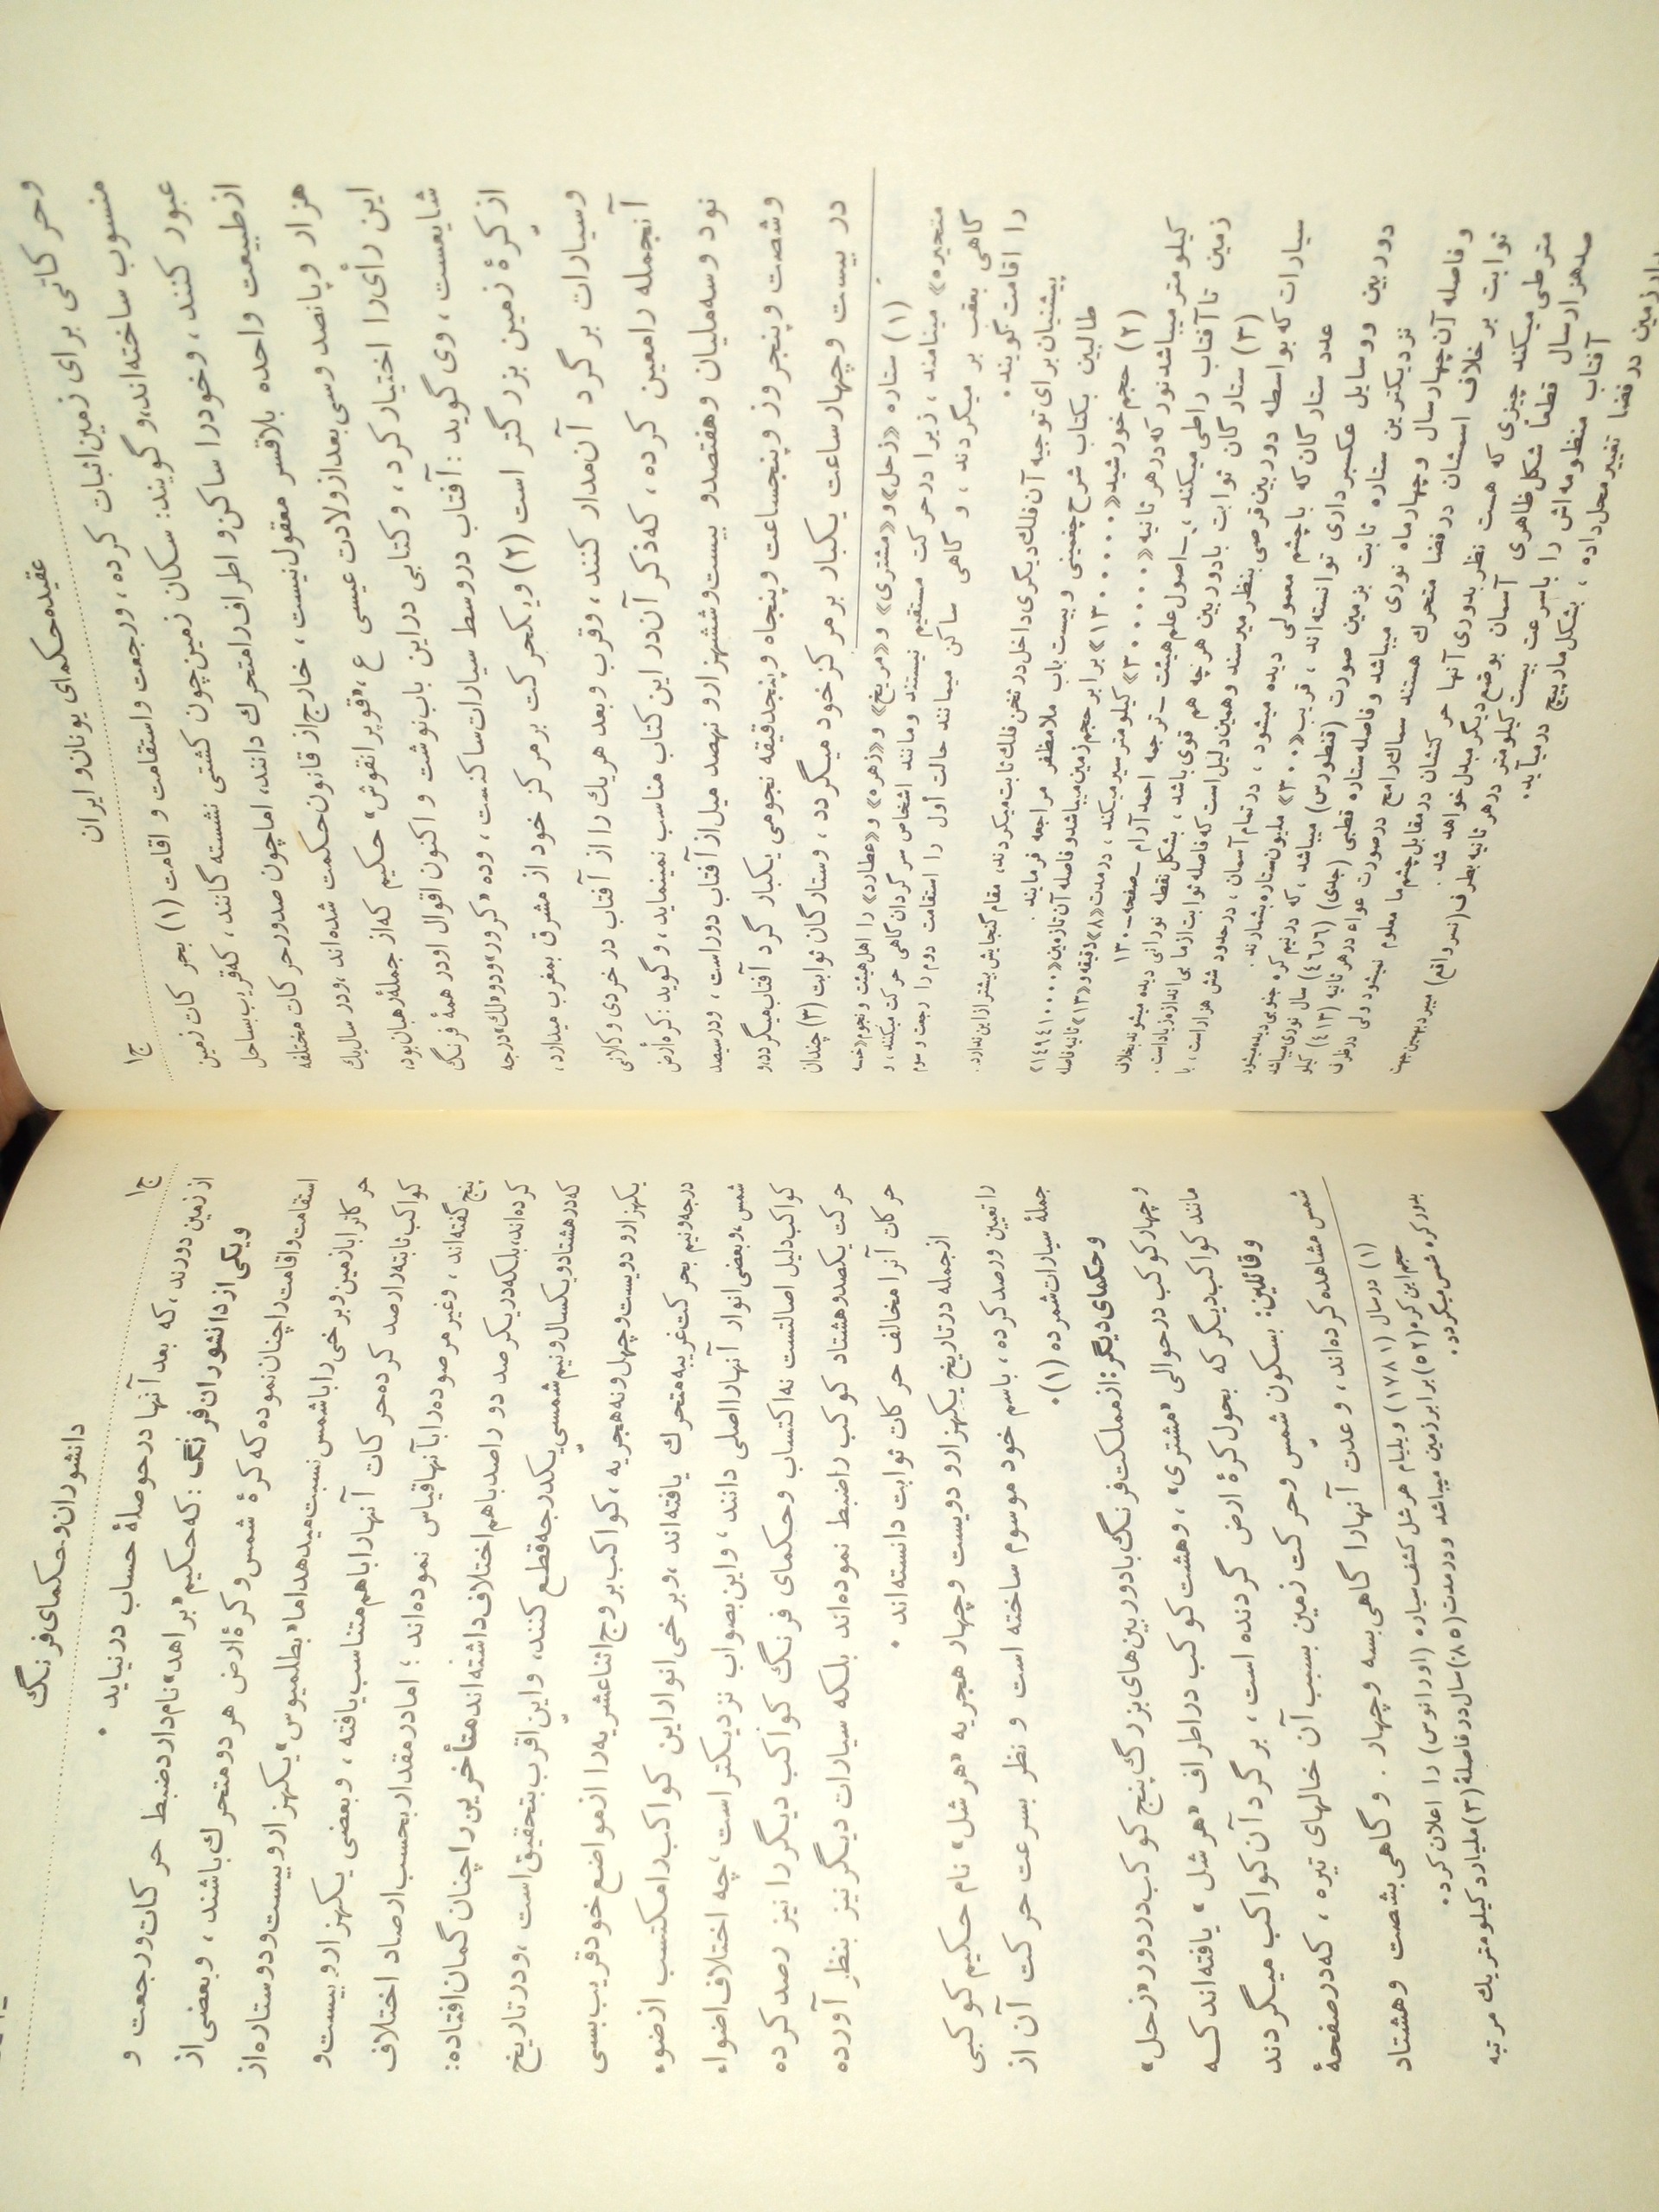 ج۱
عقیده حکمای یونان و ایران
وحرکاتی برای زمین اثبات کرده ، ورجعت واستقامت و اقامت (۱) بحرکات زمین
منسوب ساخته‌اند، و گویند: سکان زمین چون کشتی نشسته گانند، که قریب بساحل
عبور کنند ، وخودرا ساکن و اطراف رامتحرك دانند، اماچون صدورحرکات مختلفه
ازطبیعت واحده بلاقسر معقول نیست ، خارج از قانون حکمت شده‌اند ، ودر سال یك
هزار وپانصد وسی بعد از ولادت عیسی ع ، «قوپرانقوش» حکیم که از جملهٔ رهبان بود،
این رأی را اختیار کرد ، وکتابی دراین باب نوشت و اکنون اقوال اودر همهٔ فرنگ
شایعست ، وی گوید : آفتاب دروسط سیارات ساکنست ، وده «کرور» ودو «لك» درجه
ازکرهٔ زمین بزرگتر است (۲) وبکحرکت برمرکز خود از مشرق بمغرب میدارد ،
وسیارات برگرد آن مدار کنند ، وقرب وبعد هریك را از آفتاب در خردی وکلانی
آنجمله رامعین کرده ، که ذکر آن در این کتاب مناسب نمینماید ، و گوید : کره ارض
نود وسه ملیان وهفتصدو بیست وششهزارو نهصد میل از آفتاب دور است ، ودرسیصد
وشصت وپنجروز وپنجساعت وپنجاه وپنجدقیقه نجومی یکبار گرد آفتاب میگردد، و
در بیست وچهارساعت یکبار برمرکز خود میگردد ، وستارگان ثوابت (۳) چندان
(۱) ستاره «زحل» و «مشتری» و «مریخ» و «زهره» و «عطارد» را اهل هیئت و نجوم «خمسه
متحیره» مینامند ، زیرا درحرکت مستقیم نیستند ومانند اشخاص سرگردان گاهی حرکت میکنند ، و
گاهی بعقب بر میگردند ، و گاهی ساکن میمانند حالت اول را استقامت دوم را رجعت و سوم
را اقامت گویند .
پیشینیان برای توجیه آن فلك دیگری داخل در ثخن فلك ثابت میکردند، مقام گنجایش بیشتر از این ندارد.
طالبین بکتاب شرح چغمینی و بیست باب ملامظفر مراجعه فرمایند .
(۲) حجم خورشید «۱۳۰۰۰۰۰» برابر حجم زمین میباشد و فاصله آن تا زمین «۱۴۹۴۱۰۰۰۰»
کیلومتر میباشد نور که در هر ثانیه «۳۰۰۰۰۰» کیلومتر سیر میکند ، درمدت «۸» دقیقه و «۱۳» ثانیه فاصله
زمین تا آفتاب راطی میکند ، ـ اصول علم هیئت ـ ترجمه احمد آرام ـ صفحه ـ ۱۳۰
(۳) ستارگان ثوابت بادوربین هرچه هم قوی باشد ، بشکل نقطه نورانی دیده میشوند بخلاف
سیارات که بواسطه دوربین قرصی بنظر میرسند وهمین دلیل است که فاصله ثوابت از ما بی اندازه زیاد است .
عدد ستارگان که باچشم معمولی دیده میشود ، در تمام آسمان ، درحدود شش هزار است ، با
دوربین ووسایل عکسبرداری توانسته‌اند ، قریب «۳۰۰» ملیون ستاره بشمارند .
نزدیکترین ستاره ثابت بزمین صورت (قنطورس) میباشد ، که درنیم کره جنوبی دیده میشود
وفاصله آن چهارسال وچهارماه نوری میباشد و فاصله ستاره قطبی (جدی) (۴٦٫٦) سال نوری میباشد
ثوابت برخلاف اسمشان درفضا متحرك هستند سماك رامح درصورت عواء در هر ثانیه (۴۱۳) کیلو
مترطی میکند چیزی که هست نظر بدوری آنها حرکتشان درمقابل چشم ما معلوم نمیشود ولی درظرف
صدهزارسال قطعاً شکل ظاهری آسمان بوضع دیگر مبدل خواهد شد .
آفتاب منظومه‌اش را باسرعت بیست کیلومتر درهر ثانیه بطرف (نسر واقع) میبرد بهمین جهت
زمین درفضا تغییر محل داده ، بشکل مارپیچ درمیآید.
ج۱
دانشوران وحکمای فرنگ
از زمین دورند ، که بعد آنها درحوصلهٔ حساب درنیاید .
ویکی از دانشوران فرنگ : که حکیم «براهد» نام دارد ضبط حرکات ورجعت و
استقامت واقامت را چنان نموده که کرهٔ شمس وکرهٔ ارض هردو متحرك باشند ، وبعضی از
حرکات را بازمین وبرخی را باشمس نسبت میدهد اما «بطلمیوس» یکهزارو بیست ودو ستاره از
کواکب ثابته را رصد کرده حرکات آنها را باهم متناسب یافته ، وبعضی یکهزارو بیست و
پنج گفته‌اند ، وغیر مرصوده را بآنها قیاس نموده‌اند ؛ اما درمقدار بحسب ارصاد اختلاف
کرده‌اند، بلکه دریکرصد دو راصد باهم اختلاف داشته‌اند متأخرین را چنان گمان افتاده :
که درهشتادو یکسال ونیم شمسی یکدرجه قطع کنند، واین اقرب بتحقیق است ، ودر تاریخ
یکهزارو دویست وچهل ونه هجریه ، کواکب بروج اثناعشریه را از مواضع خود قریب بسی
درجه ونیم بحرکت غریبه متحرك یافته‌اند ، وبرخی انوار این کواکب را مکتسب از ضوء
شمس ، وبعضی انوار آنها را اصلی دانند ، واین بصواب نزدیکتر است ، چه اختلاف اضواء
کواکب دلیل اصالتست نه اکتساب وحکمای فرنگ کواکب دیگر را نیز رصد کرده
حرکت یکصدوهشتاد کوکب راضبط نموده‌اند بلکه سیارات دیگر نیز بنظر آورده
حرکات آنرا مخالف حرکات ثوابت دانسته‌اند .
ازجمله درتاریخ یکهزارو دویست وچهار هجریه «هرشل» نام حکیم کوکبی
را تعیین ورصد کرده ، باسم خود موسوم ساخته است و نظر بسرعت حرکت آن از
جملهٔ سیارات شمرده (۱).
وحکمای دیگر : از مملکت فرنگ بادوربین‌های بزرگ پنج کوکب دردور «زحل»
وچهارکوکب درحوالی «مشتری» ، وهشت کوکب دراطراف «هرشل» یافته‌اند که
مانند کواکب دیگر که بحول کرهٔ ارض گردنده است ، برگرد آن کواکب میگردند
وقائلین : بسکون شمس وحرکت زمین بسبب آن خالهای تیره ، که درصفحهٔ
شمس مشاهده کرده‌اند ، وعدت آنهارا گاهی بسه وچهار . وگاهی بشصت وهشتاد
(۱) در سال (۱۷۸۱) ویلیام هرشل کشف سیاره (اورانوس) را اعلان کرد.
حجم این کره (۵۲) برابر زمین میباشد ودرمدت (۸۵) سال درفاصلهٔ (۳) ملیارد کیلومتر یك مرتبه
بدور کره شمس میگردد .